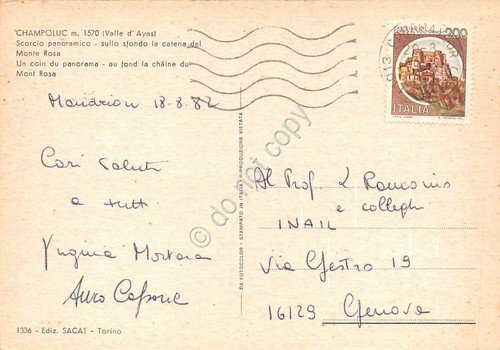 CHAMPOLUC m. 1570 (Valle d'Ayas)
Scorcio panoramico - sullo sfondo la catena del
Monte Rosa
Un coin du panorama - au fond la chaîne du
Mont Rosa
18.8.82
Cari saluti
a tutti
Virginia Mortara
1336 - Ediz. SACAT - Torino
DA FOTOCOLOR - STAMPATO IN ITALIA RIPRODUZIONE VIETATA
200
ITALIA
Al Prof. L Romano
e colleghi
INAIL
Via Gestro 19
16129 Genova
do not copy